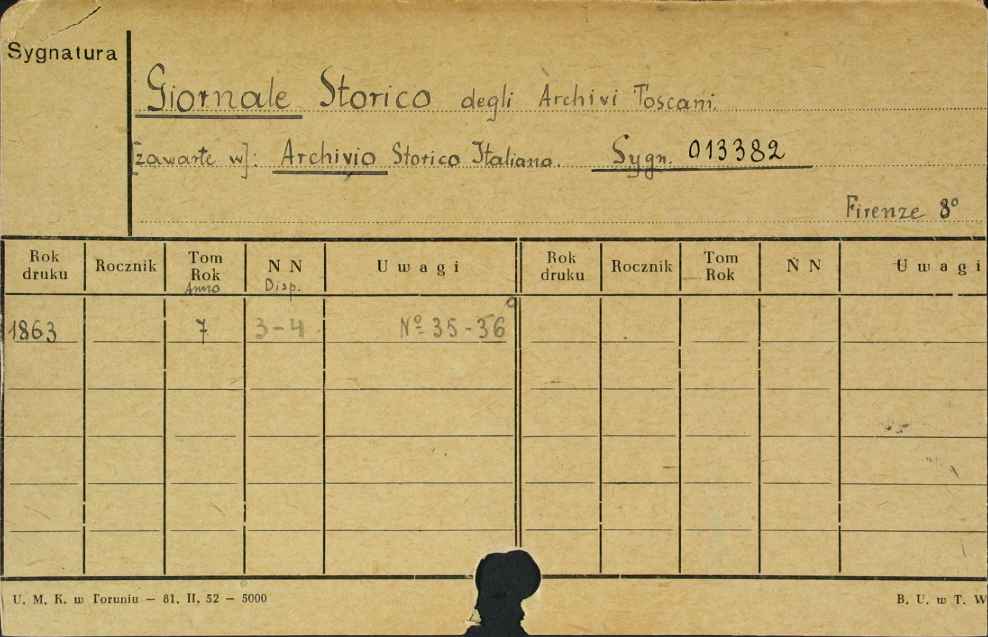 Sygnatura
Giornale Storico degli Archivi Toscani.
[zawarte w]: Archivio Storico Italiano. Sygn. 013382
Firenze 8°
Rok druku Rocznik Tom Rok Anno N N Disp. U w a g i Rok druku Rocznik Tom Rok N N U w a g i
1863 7 3-4 Nº 35-36
U. M. K. w Toruniu — 81. II. 52 — 5000 B. U. w T. W